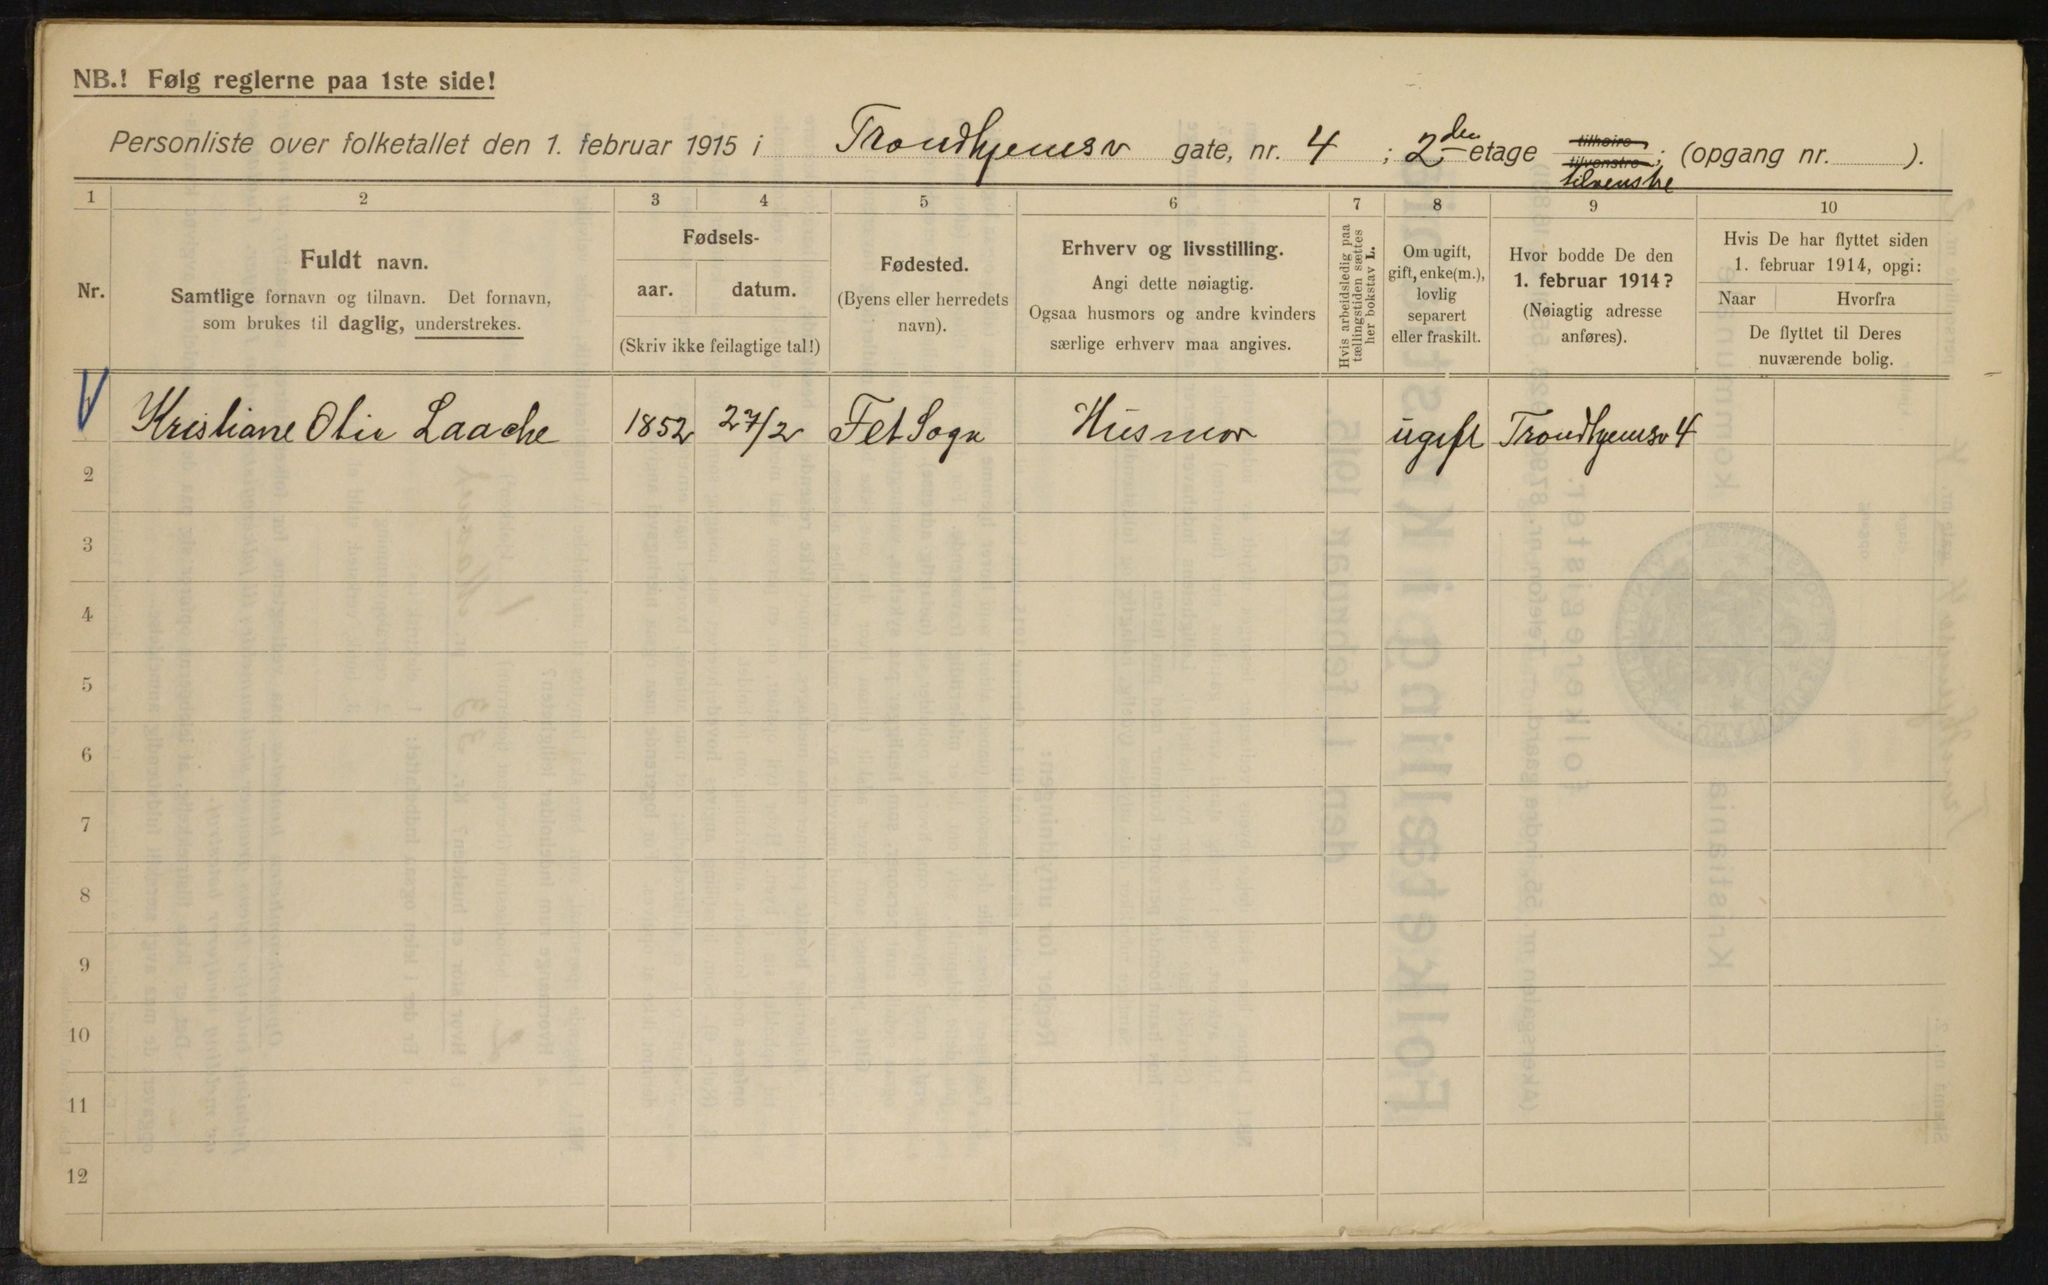 NB.! Følg reglerne paa 1ste side!
Personliste over folketallet den 1. februar 1915 i Trondhjemsv gate, nr. 4 ; 2den etage tilhøire tilvenstre ; (opgang nr. ).
tilvenstre
1 2 3 4 5 6 7 8 9 10
Nr.
Fuldt navn.
Samtlige fornavn og tilnavn. Det fornavn,
som brukes til daglig, understrekes.
Fødsels-
aar. datum.
(Skriv ikke feilagtige tal!)
Fødested.
(Byens eller herredets
navn).
Erhverv og livsstilling.
Angi dette nøiagtig.
Ogsaa husmors og andre kvinders
særlige erhverv maa angives.
Hvis arbeidsledig paa
tællingstiden sættes
her bokstav L.
Om ugift,
gift, enke(m.),
lovlig
separert
eller fraskilt.
Hvor bodde De den
1. februar 1914?
(Nøiagtig adresse
anføres).
Hvis De har flyttet siden
1. februar 1914, opgi:
Naar Hvorfra
De flyttet til Deres
nuværende bolig.
Kristiane Laache 1852 27/2 Fet Sogn Husmor ugift Trondhjemsv 4
2
3
4
5
6
7
8
9
10
11
12